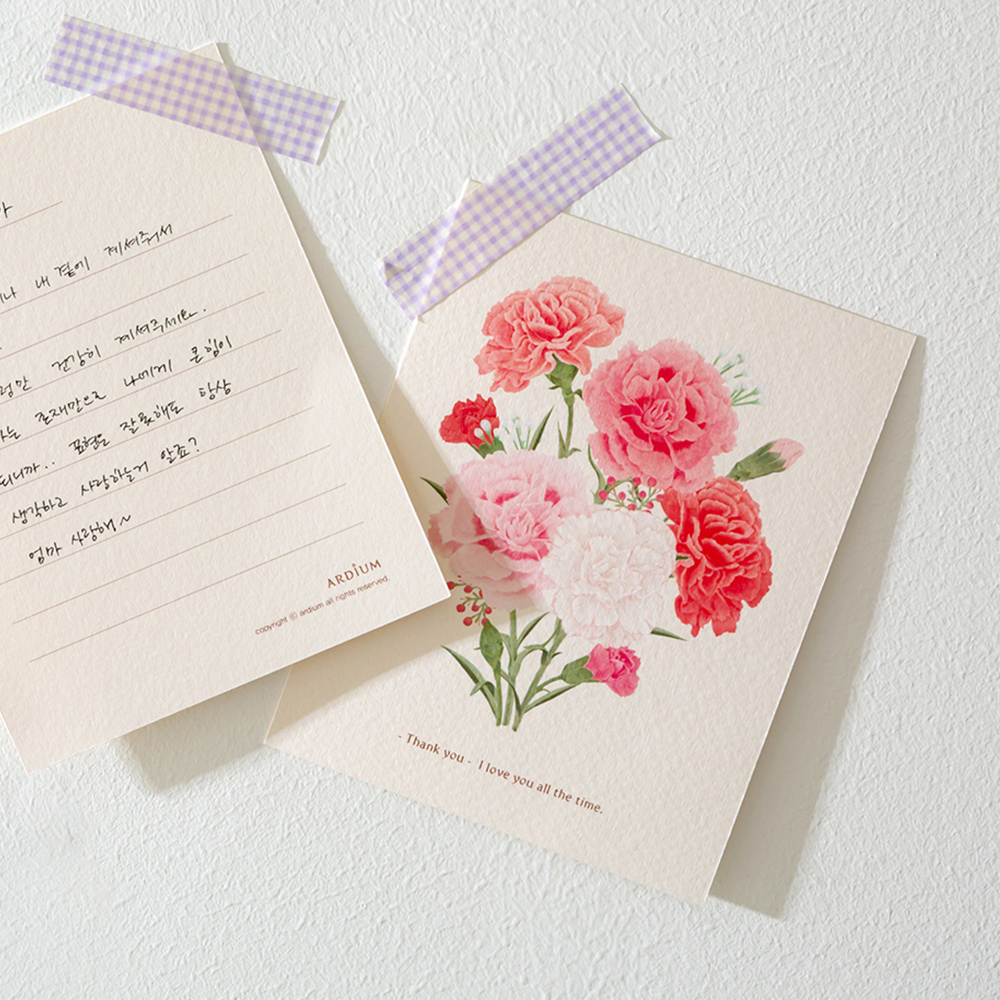 내 곁에 계셔줘서
건강히 계셔주세요.
존재만으로 나에게 큰 힘이
되니까.. 표현은 잘 못해도 항상
생각하고 사랑하는거 알죠?
엄마 사랑해~
ARDIUM
copyright ⓒ ardium all rights reserved.
- Thank you - I love you all the time.